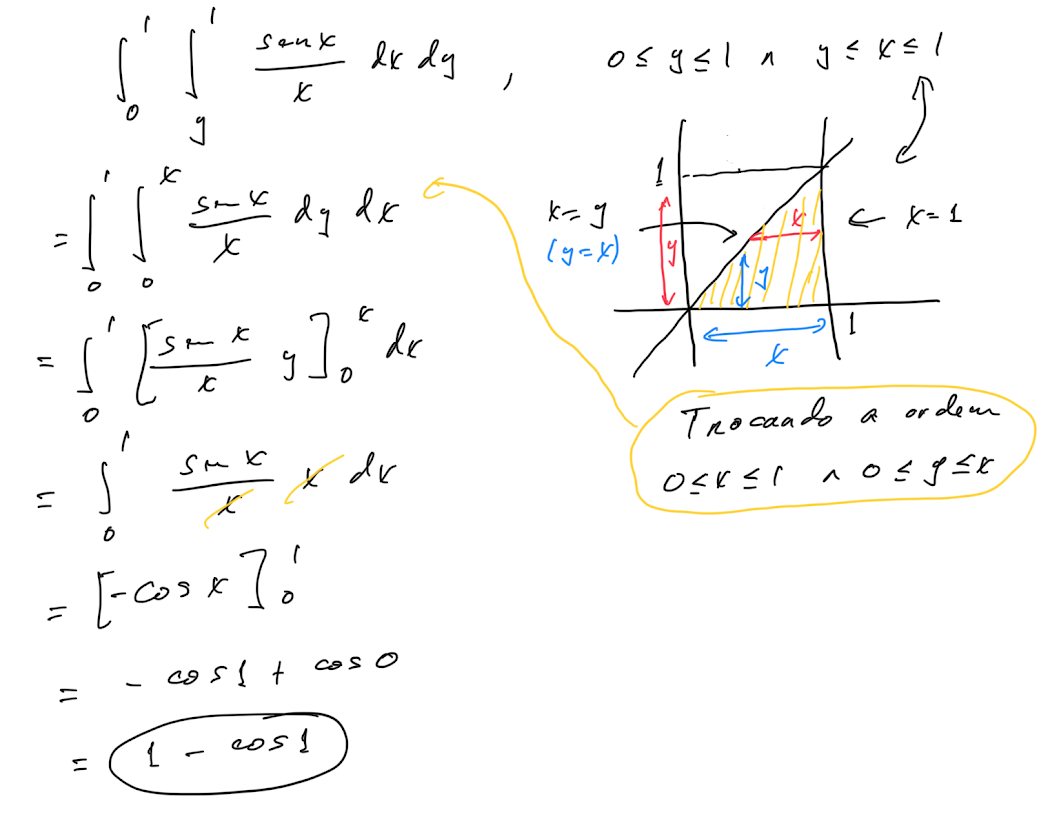 ∫₀¹ ∫_y¹ (sen x)/x dx dy ,
0 ≤ y ≤ 1 ∧ y ≤ x ≤ 1
= ∫₀¹ ∫₀ˣ (sen x)/x dy dx
= ∫₀¹ [(sen x)/x y]₀ˣ dx
= ∫₀¹ (sen x)/x x dx
= [-cos x]₀¹
= - cos 1 + cos 0
= 1 - cos 1
1
x = y
(y = x)
y
x
← x = 1
y
1
x
Trocando a ordem
0 ≤ x ≤ 1 ∧ 0 ≤ y ≤ x